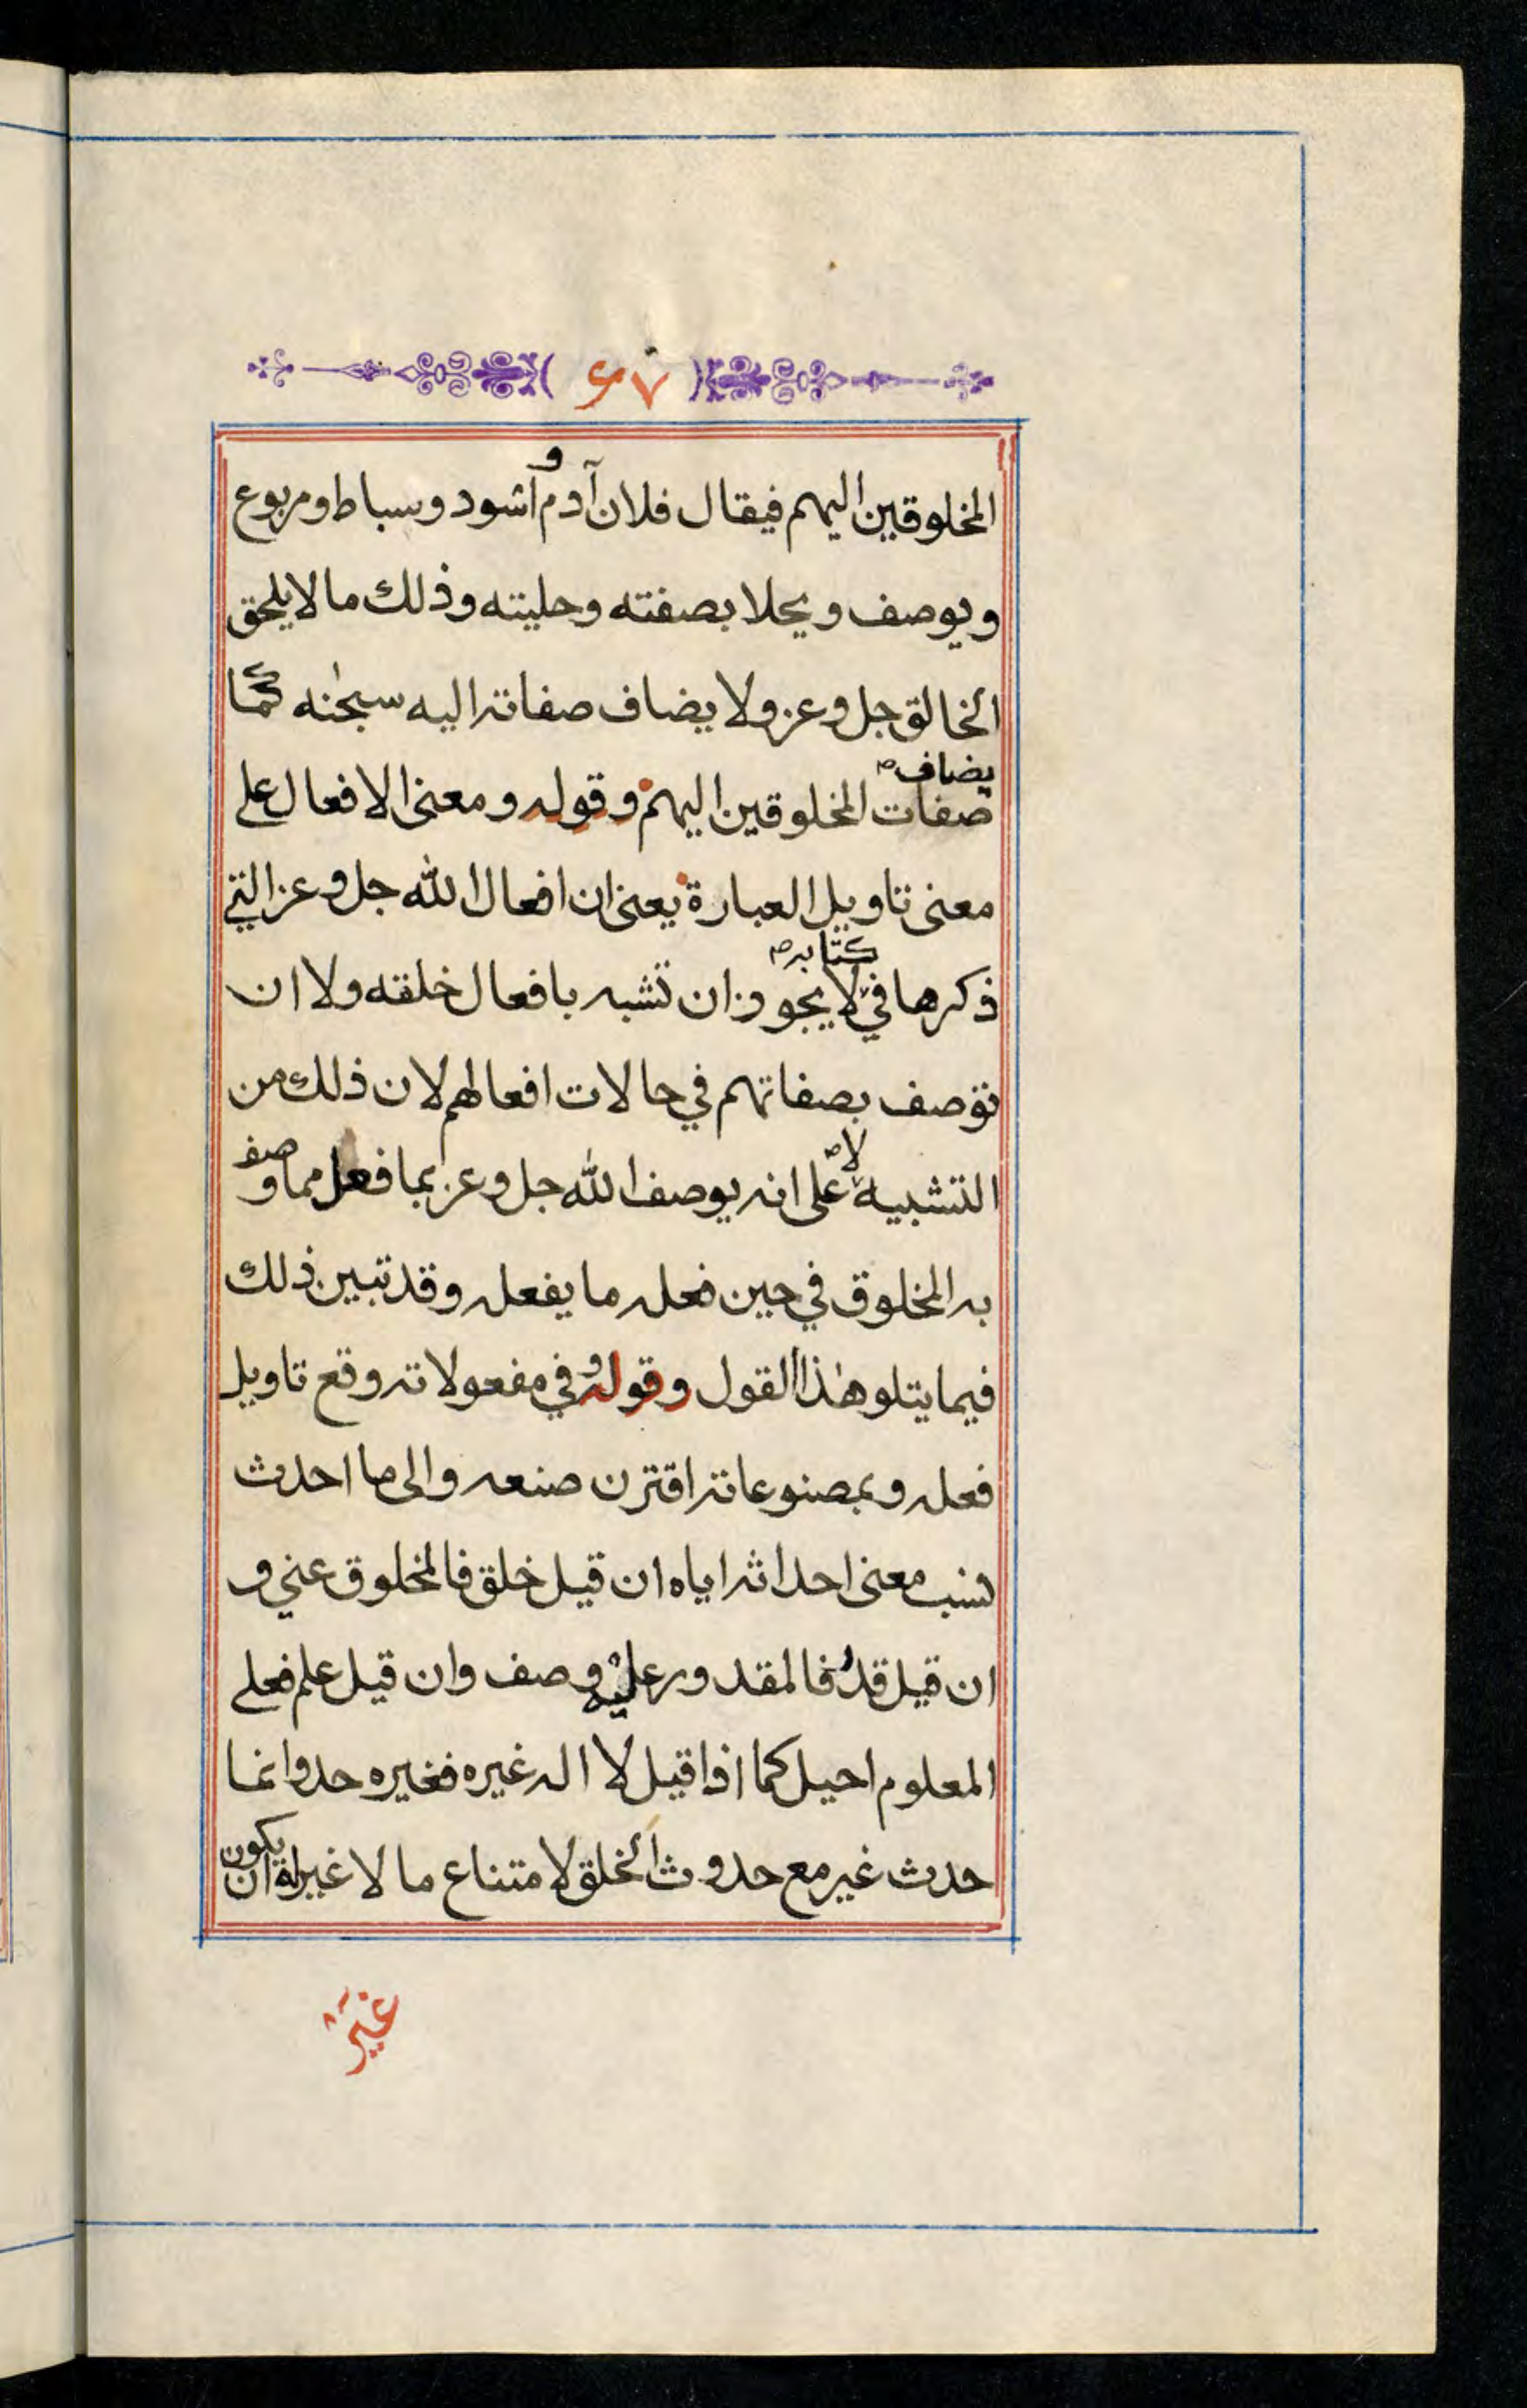 ٦٧
المخلوقين اليهم فيقال فلان آدم و اسود وسباط ومربوع
ويوصف ويحلا بصفته وحليته وذلك ما لا يلحق
الخالق جل وعز ولا يضاف صفاته اليه سبحنه كما
يضاف صفات المخلوقين اليهم وقوله ومعنى الافعال على
معنى تاويل العبارة يعنى ان افعال الله جل وعز التي
ذكرها في كتابه لا يجوز ان تشبه بافعال خلقه ولا ان
توصف بصفاتهم في حالات افعالهم لان ذلك من
التشبيه لا على انه يوصف الله جل وعز بما فعل مما وصف
به المخلوق في حين فعله ما يفعله وقد تبين ذلك
فيما يتلو هذا القول وقوله وفي مفعولاته وقع تاويل
فعله وبمصنوعاته اقترن صنعه والى ما احدث
نسب معنى احداثه اياه ان قيل خلق فالمخلوق عني و
ان قيل قدر فالمقدور عليه وصف وان قيل علم فعلى
المعلوم احيل كما اذا قيل لا اله غيره فغيره حد وانما
حدث غير مع حدوث الخلق لامتناع ما لا غير له ان يكون
غير